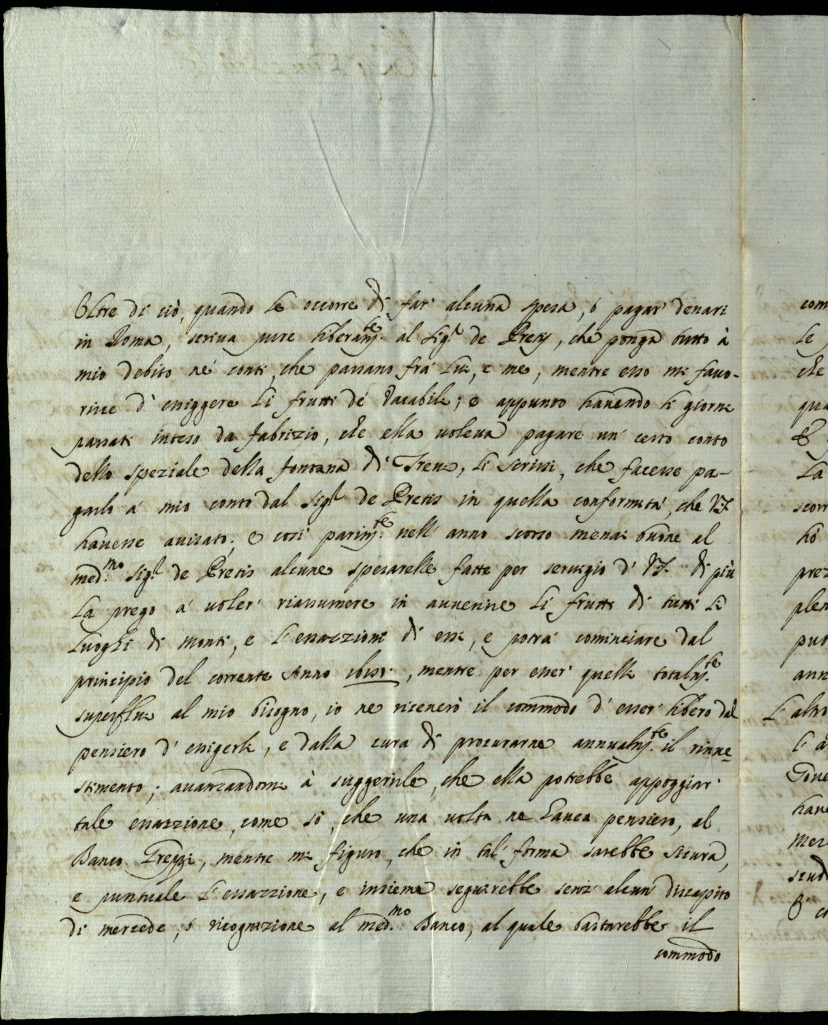 Oltre di ciò, quando le occorre di far' alcuna spesa, ò pagar' denari
in Roma, scriva pure liberam.te al Sig.r de Pretis, che ponga tutto à
mio debito ne' conti, che passano frà lui, e me, mentre esso mi favo-
risce d' esiggere li frutti de' Vacabili; e appunto havendo li giorni
passati inteso da Fabrizio, che ella voleva pagare un' certo conto
dello speziale della fontana di Trevi, li scrissi, che facesse pa-
garlo à mio conto dal Sig.r de Pretis in quella conformità, che V.S.
havesse avisato; e così parim.te nell' anno scorso menai buone al
med.mo Sig.r de Pretis alcune spesarelle fatte per servigio di V.S. di più
La prego à voler' riassumere in avvenire li frutti di tutti li
Luoghi di Monti, e l'esazzione di essi, e potrà cominciare dal
principio del corrente Anno, mentre per esser' quelli totalm.te
superflui al mio bisogno, io ne riceverò il commodo d' esser' libero dal
pensiero d' esigerli, e dalla cura di procurarne annualm.te il rinve-
stimento; avanzandomi à suggerirle, che ella potrebbe appoggiar'
tale esazzione, come sò, che una volta ne haveva pensiero, al
Banco, mentre mi figuro, che in tal' forma sarebbe sicura,
e puntuale l'esazzione, e insieme seguirebbe senz' alcun' discapito
di mercede, ò ricognizione al med.mo Banco, al quale bastarebbe il
commodo
com
le
che
qua
La
scorr
hò
prez
plen
put
ann
L'altr
have
mer
scud